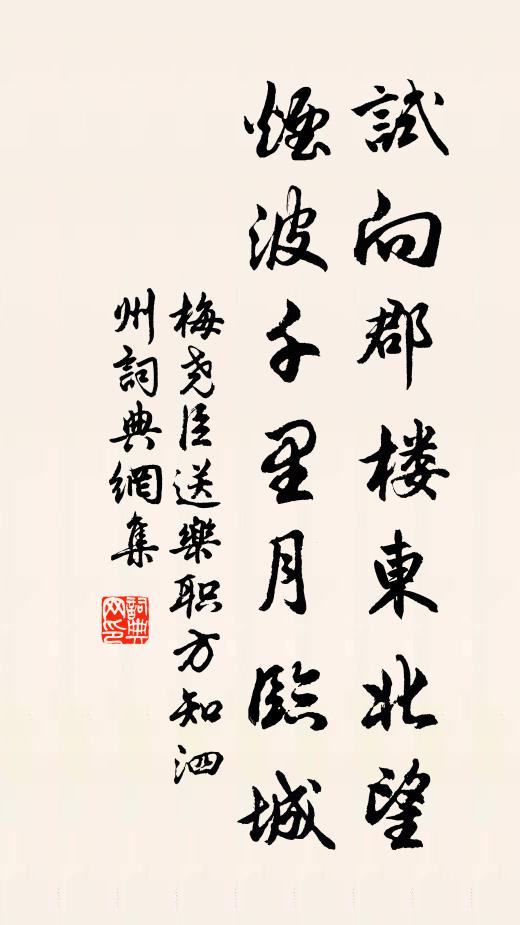 試向郡楼東北望
煙波千里月臨城
梅尧臣送樂职方知泗
州詞典網集
詞典
网印